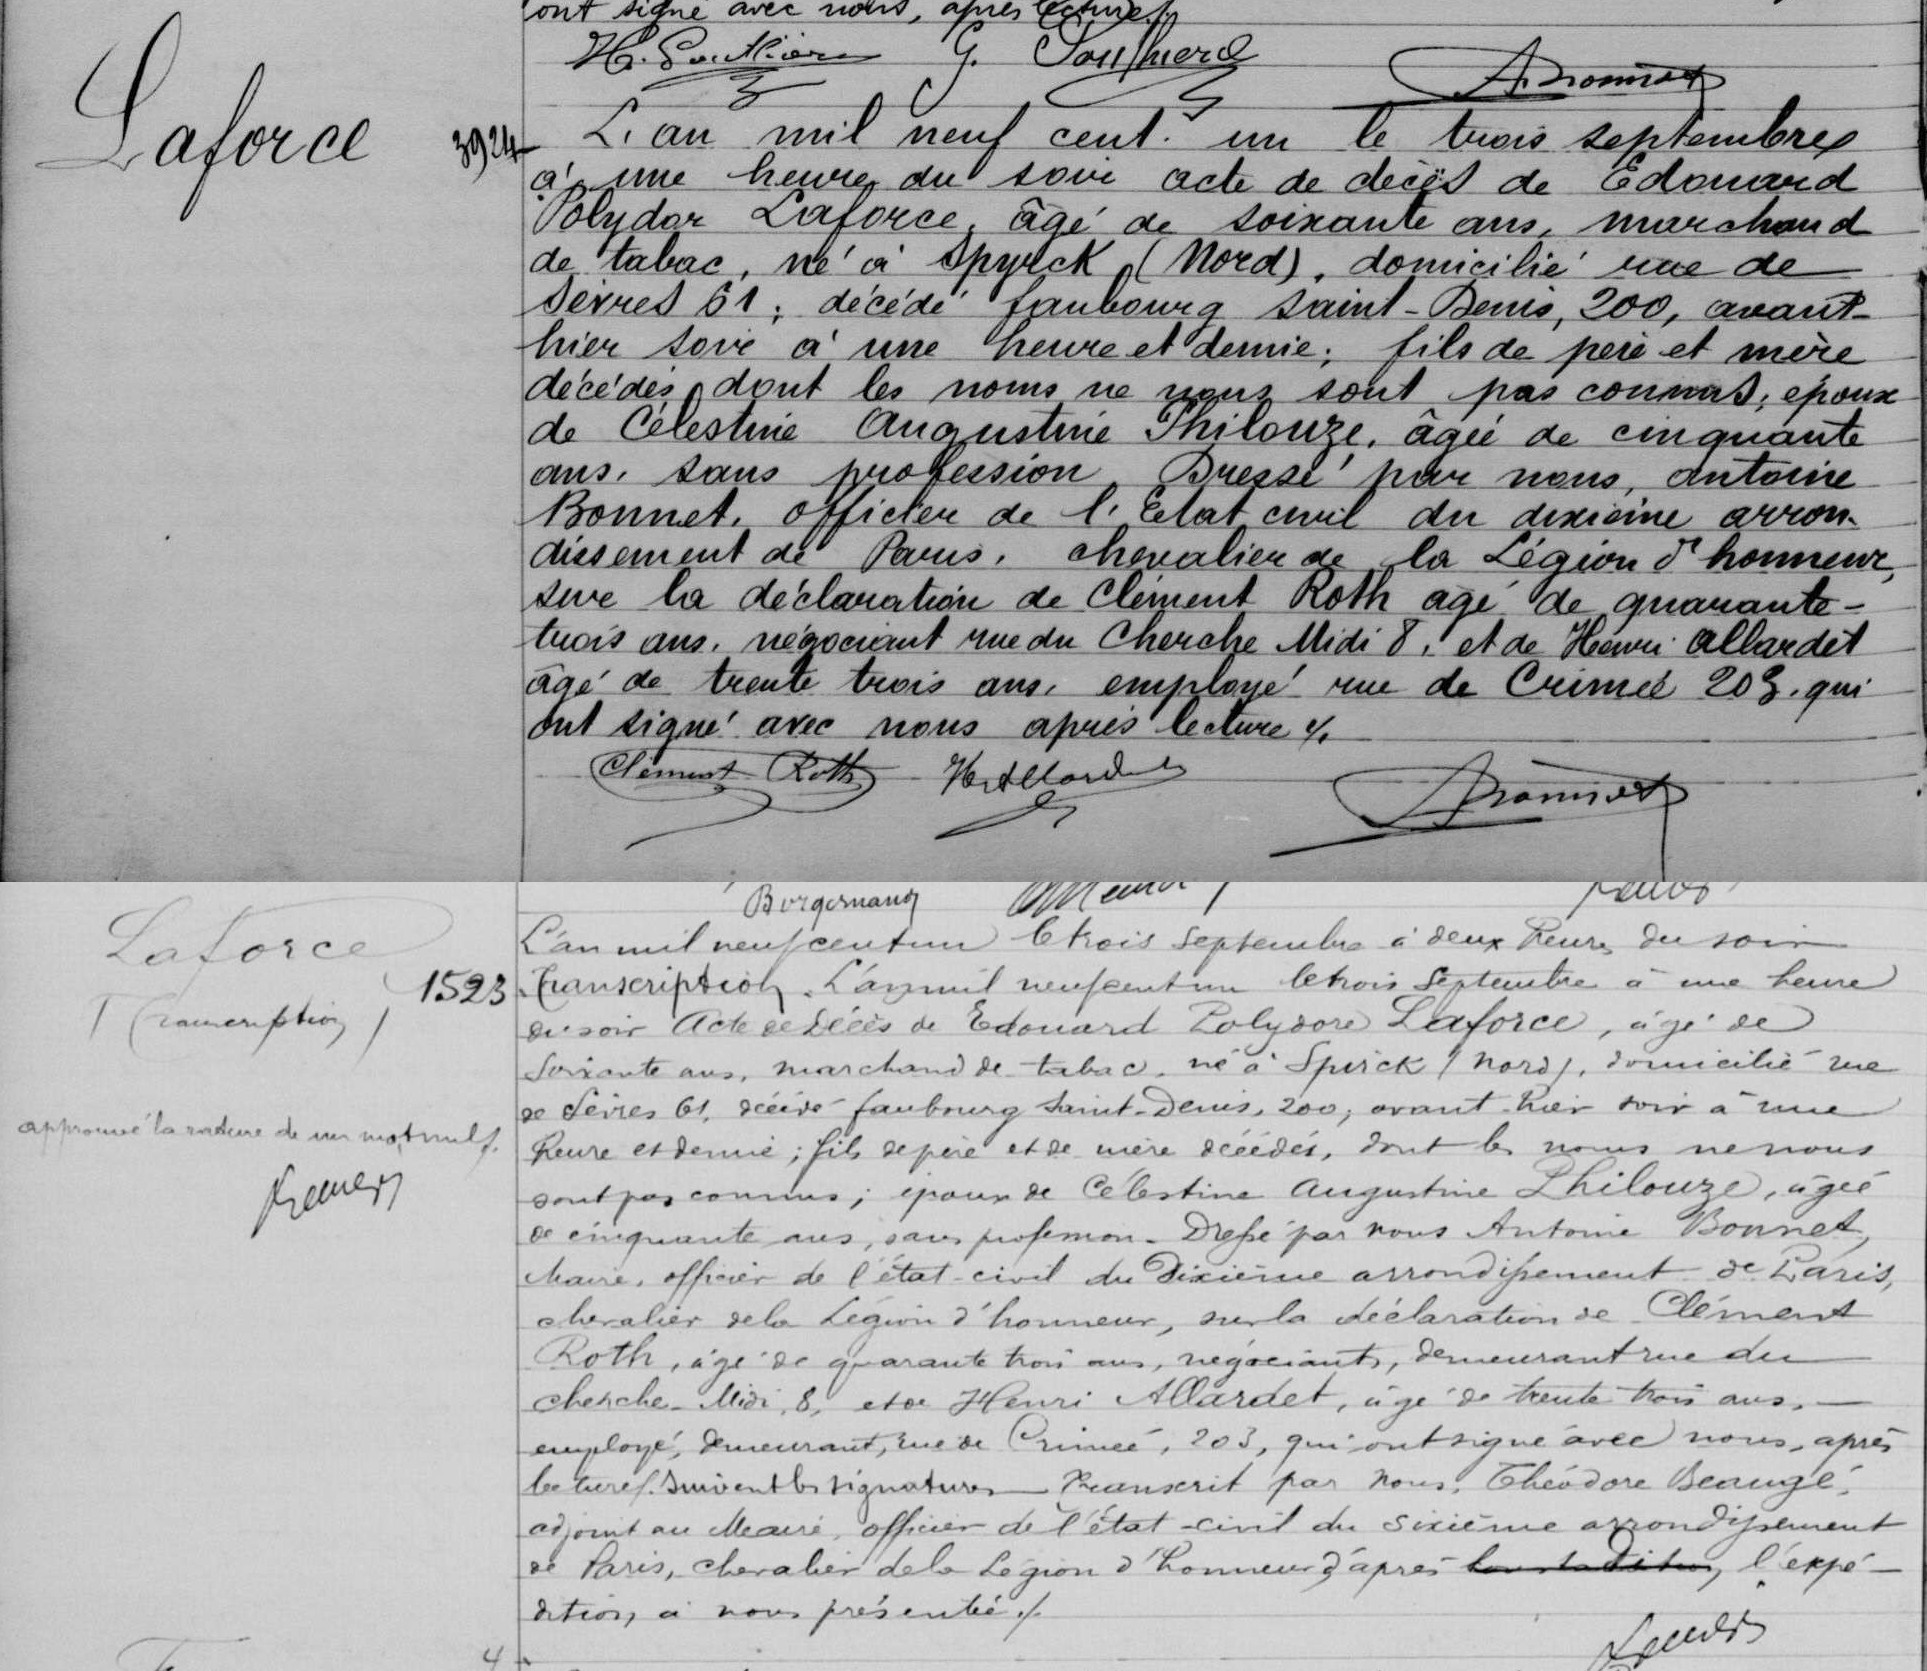 ont signé avec nous, après lecture /.
H. Gouthière G. ABonnet
Laforce
3924
L'an mil neuf cent. un le trois septembre
à une heure du soir acte de décès de Edouard
Polydor Laforce, âgé de soixante ans, marchand
de tabac, né à Spyrck (Nord), domicilié rue de
Sèvres 61; décédé faubourg Saint-Denis, 200, avant-
hier soir à une heure et demie; fils de père et mère
décédés dont les noms ne nous sont pas connus; époux
de Célestine Augustine Philouze, âgée de cinquante
ans, sans profession. Dressé par nous, Antoine
Bonnet, officier de l'Etat civil du dixième arron-
dissement de Paris, chevalier de la Légion d'honneur,
sur la déclaration de Clément Roth âgé de quarante-
trois ans, négociant rue du Cherche Midi 8, et de Henri Allardet
âgé de trente trois ans, employé rue de Crimée 203, qui
ont signé avec nous après lecture /.
Clément Roth H. Allardet ABonnet
Laforce
Transcription
1523
L'an mil neuf cent un le trois Septembre à deux heures du soir
Transcription. L'an mil neuf cent un le trois Septembre à une heure
du soir Acte de Décès de Edouard Polydore Laforce, âgé de
soixante ans, marchand de tabac, né à Spirck (Nord), domicilié rue
de Sèvres 61, décédé faubourg Saint-Denis, 200, avant-hier soir à une
heure et demie; fils de père et de mère décédés, dont les noms ne nous
sont pas connus; époux de Célestine Augustine Philouze, âgée
de cinquante ans, sans profession. Dressé par nous Antoine Bonnet,
Maire, officier de l'état-civil du Dixième arrondissement de Paris,
chevalier de la Légion d'honneur, sur la déclaration de Clément
Roth, âgé de quarante trois ans, négociant, demeurant rue du
Cherche-Midi, 8, et de Henri Allardet, âgé de trente trois ans,
employé, demeurant, rue de Crimée, 203, qui ont signé avec nous, après
lecture /. Suivent les signatures Transcrit par Nous, Théodore Beaugé,
adjoint au Maire, officier de l'état-civil du sixième arrondissement
de Paris, chevalier de la Légion d'honneur, d'après l'expé-
dition, à nous présentée /.
approuvé la rature de un mot nul /.